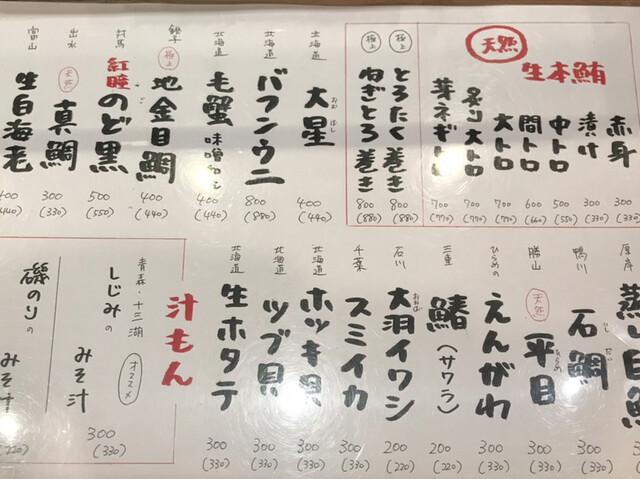 天然
生本鮪
赤身
300
(330)
漬け
300
(330)
中トロ
500
(550)
間トロ
600
(660)
大トロ
700
(770)
炙り大トロ
700
(770)
芽ネギトロ
700
(770)
極上
とろたく巻き
800
(880)
極上
ねぎとろ巻き
800
(880)
北海道
大星
おおぼし
400
(440)
北海道
バフンウニ
800
(880)
北海道
毛蟹
味噌和え
400
(440)
銚子
極上
地金目鯛
400
(440)
対馬
紅瞳のど黒
500
(550)
出水
天然
真鯛
300
(330)
富山
生白海老
400
(440)
厚岸
鴨川
石鯛
いしだい
300
(330)
勝山
天然
平目
ひらめ
300
(330)
ひらめの
えんがわ
300
(330)
三重
鰆
(サワラ)
200
(220)
石川
大羽イワシ
おおば
200
(220)
千葉
スミイカ
300
(330)
北海道
ホッキ貝
300
(330)
北海道
ツブ貝
300
(330)
北海道
生ホタテ
300
(330)
汁もん
青森・十三湖
しじみの
みそ汁
オススメ
300
(330)
磯のりの
みそ汁
(220)